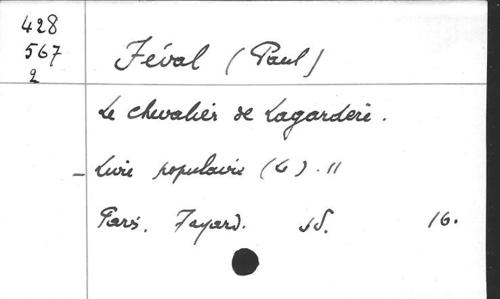 428
567
2
Féval (Paul)
Le chevalier de Lagardère.
Livre populaire (Le). 11
Paris. Fayard. sd. 16.